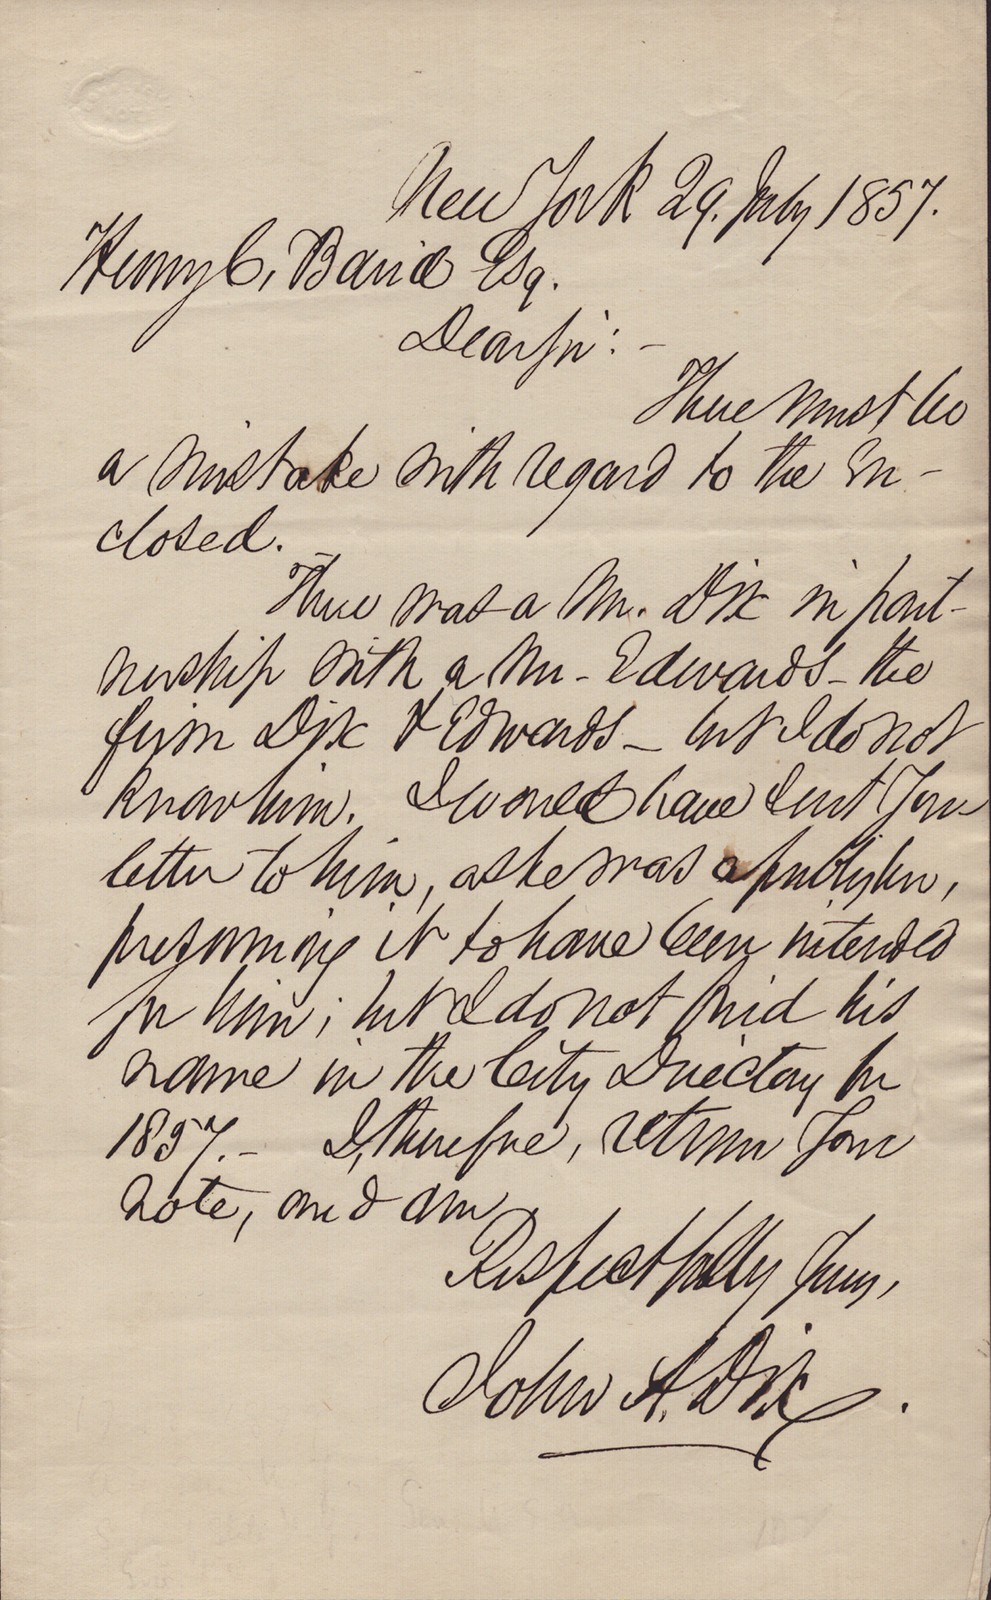 New York 29. July 1857.
Henry C. Baird Esq.
Dear Sir: –
There must be
a mistake with regard to the en-
closed.
There was a Mr. Dix in part-
nership with a Mr. Edwards – the
firm Dix & Edwards – but I do not
know him. I would have sent your
letter to him, as he was a publisher,
presuming it to have been intended
for him; but I do not find his
name in the City Directory for
1857. – I, therefore, return your
note, and am
Respectfully Yours,
John A. Dix.